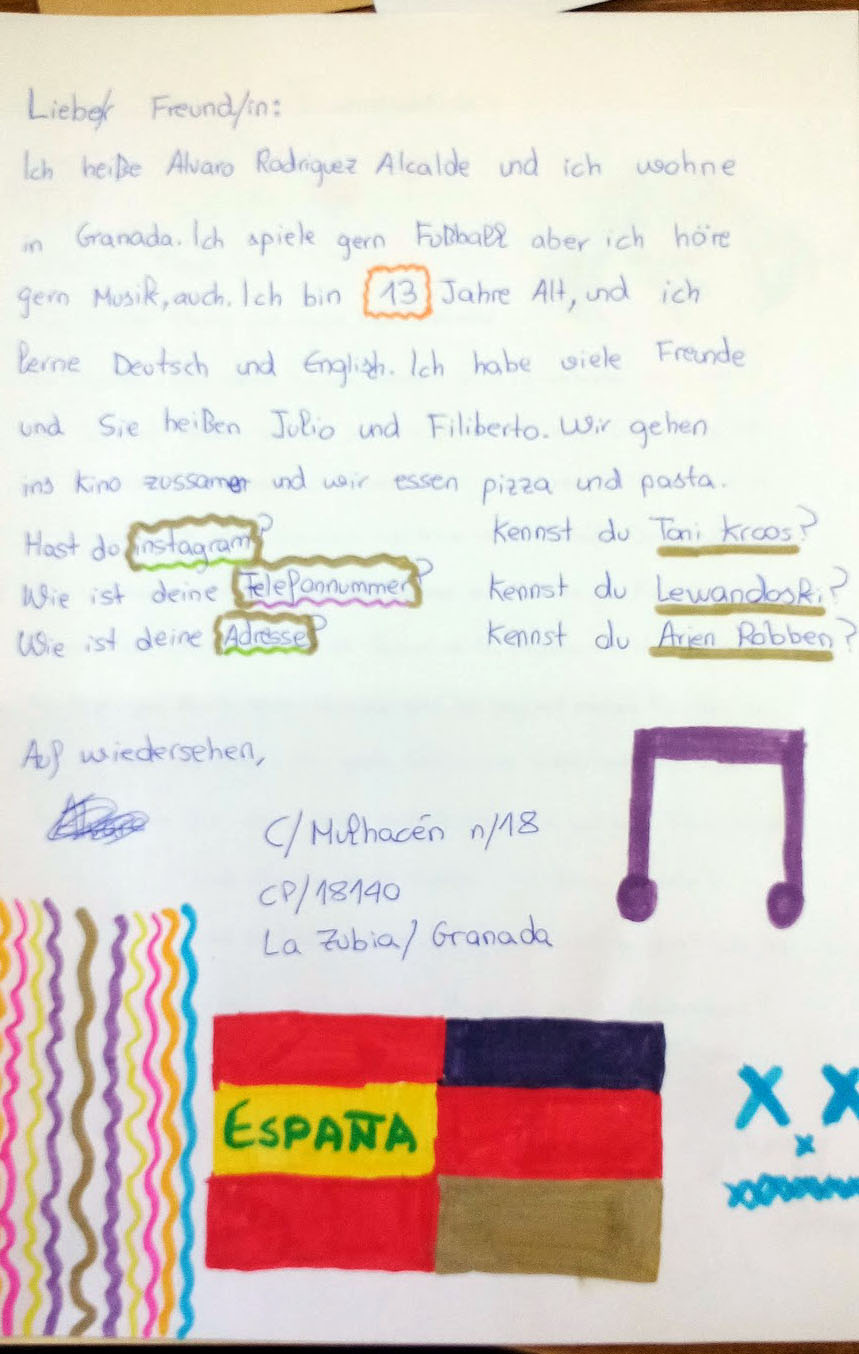 Liebe/r Freund/in:
Ich heiße Alvaro Rodriguez Alcalde und ich wohne
in Granada. Ich spiele gern Fußball aber ich höre
gern Musik, auch. Ich bin 13 Jahre Alt, und ich
lerne Deutsch und English. Ich habe viele Freunde
und Sie heißen Julio und Filiberto. Wir gehen
ins kino zussamer und wir essen pizza und pasta.
Hast du instagram? Kennst du Toni kroos?
Wie ist deine Telefonnummer? Kennst du Lewandoski?
Wie ist deine Adresse? Kennst du Arien Robben?
Auf wiedersehen,
C/Mulhacén n/18
CP/18140
La Zubia/Granada
ESPAÑA